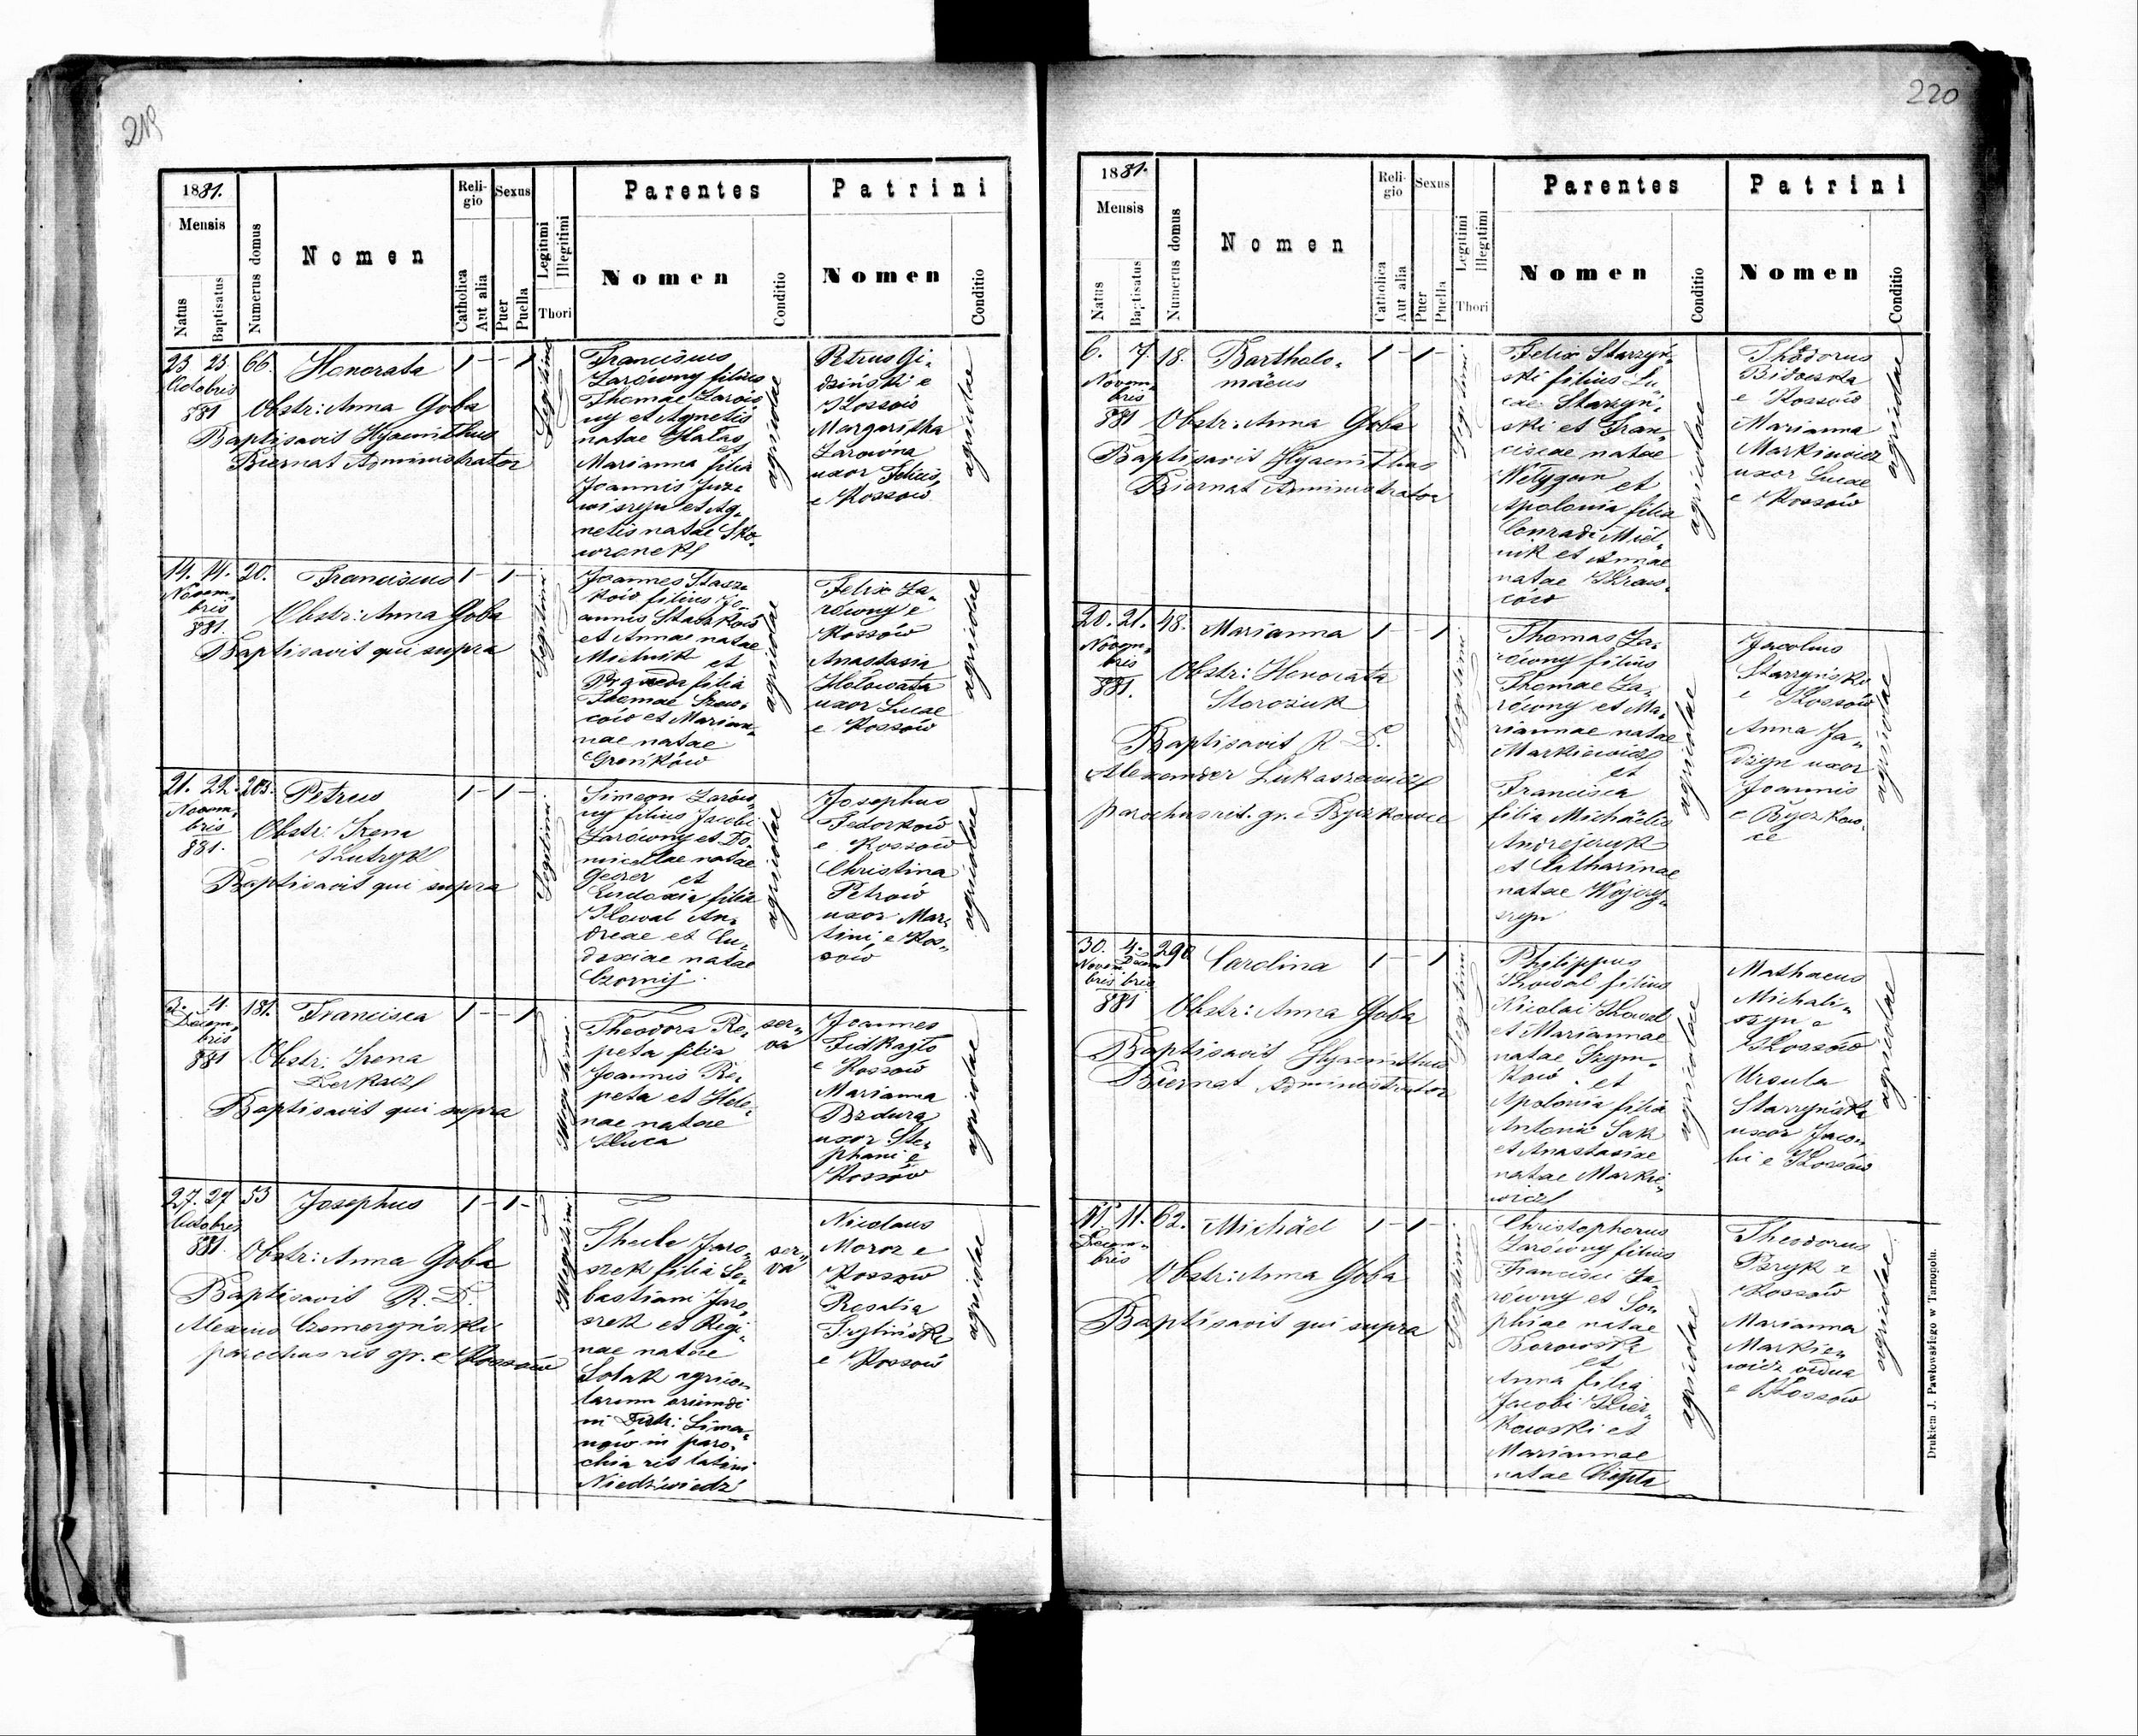 219
1881.
Mensis
Natus
Baptisatus
Numerus domus
Nomen
Religio
Catholica
Aut alia
Sexus
Puer
Puella
Legitimi
Illegitimi
Thori
Parentes
Nomen
Conditio
Patrini
Nomen
Conditio
23 25 66. Honorata 1 - - 1
Octobris
881
Obstr: Anna Goba
Baptisavit Hyacinthus
Biernat Administrator
Legitimi
Franciscus
Zarówny filius
Thomae Zarów
ny et Agnetis
natae Hałas
et
Marianna filia
Joannis
et Ag-
netis natae Sko-
wronek
agricolae
Petrus Gi-
dziński e
Kossów
Margaritha
Zarówna
uxor Felicis
e Kossów
agricolae
14. 14. 20. Franciscus 1 - 1 -
Novem-
bris
881.
Obstr: Anna Goba
Baptisavit qui supra
Legitimi
Joannes Stasz-
ków filius Jo-
annis Staszków
et Annae natae
Michnik et
filia
Thomae Szew-
ców et Marian-
nae natae
Greńków
agricolae
Felix Za-
równy e
Kossów
Anastasia
Hołowata
uxor Lucae
e Kossów
agricolae
21. 22. 203. Petrus 1 - 1 -
Novem-
bris
881.
Obstr: Irena
Baptisavit qui supra
Legitimi
Simeon Zarów-
ny filius Jacobi
Zarówny et Do-
micellae natae
et
Eudoxia filia
Kowal An-
dreae et Eu-
doxiae natae
Czornij
agricolae
Josephus
Fedorków
e Kossów
Christina
Petrów
uxor Mar-
tini e Kos-
sów
agricolae
3. 4. 181. Francisca 1 - - 1
Decem-
bris
881
Obstr: Irena
Derkacz
Baptisavit qui supra
Illegitimi
Theodora Re-
peta filia
Joannis Re-
peta et Hele-
nae natae
Kluca
ser-
va
Joannes
Fidkajło
e Kossów
Marianna
Bzdura
uxor Ste-
phani e
Kossów
agricolae
27. 27 53 Josephus 1 - 1 -
Octobris
881.
Obstr: Anna Goba
Baptisavit R. D.
Alexius Czemeryński
parochus rit gr. e Kossów
Illegitimi
Thecla Jaro-
szek filia Se-
bastiani Jaro-
szek et Regi-
nae natae
Solak agrico-
larum oriundi
in Distr: Lima-
nów in paro-
chia rit latini
Niedźwiedź
ser-
va
Nicolaus
Moroz e
Kossów
Rosalia
Trylińska
e Kossów
agricolae
220
1881.
Mensis
Natus
Baptisatus
Numerus domus
Nomen
Religio
Catholica
Aut alia
Sexus
Puer
Puella
Legitimi
Illegitimi
Thori
Parentes
Nomen
Conditio
Patrini
Nomen
Conditio
6. 7. 18. Bartholo-
mäeus 1 - 1 -
Novem-
bris
881
Obstr: Anna Goba
Baptisavit Hyacinthus
Biernat Administrator
Legitimi
Felix Starzyń-
ski filius Lu-
cae Starzyń-
ski et Fran-
ciscae natae
et
Apolonia filia
Conradi Miel-
nik et Annae
natae Kraw-
ców
agricolae
Theodorus
e Kossów
Marianna
Markiewicz
uxor Lucae
e Kossów
agricolae
20. 21. 48. Marianna 1 - - 1
Novem-
bris
881.
Obstr: Honorata
Storożuk
Baptisavit R. D.
Alexander Łukaszewicz
parochus rit. gr. e Byczkowce
Legitimi
Thomas Za-
równy filius
Thomae Za-
równy et Ma-
riannae natae
Markiewicz
et
Francisca
filia Michäelis
Andrejczuk
et Catharinae
natae Wojcy-
szyn
agricolae
Jacobus
Starzyński
e Kossów
Anna Ja-
dzyn uxor
Joannis
e Byczkow-
ce
agricolae
30. 4. 290 Carolina 1 - - 1
Novem Decem
bris bris
881
Obstr: Anna Goba
Baptisavit Hyacinthus
Biernat Administrator
Legitimi
Philippus
Kowal filius
Nicolai Kowal
et Mariannae
natae Szym-
ków et
Apolonia filia
Antonii Sak
et Anastasiae
natae Markie-
wicz
agricolae
Mathaeus
Michali-
szyn e
Kossów
Ursula
Starzyńska
uxor Jaco-
bi e Kossów
agricolae
11. 11. 62. Michäel 1 - 1 -
Decem-
bris
Obstr: Anna Goba
Baptisavit qui supra
Legitimi
Christophorus
Zarówny filius
Francisci Za-
równy et So-
phiae natae
Borowska
et
Anna filia
Jacobi Kier-
kowski et
Mariannae
natae
agricolae
Theodorus
Pszyk e
Kossów
Marianna
Markie-
wicz vidua
e Kossów
agricolae
Drukiem J. Pawłowskiego w Tarnopolu.